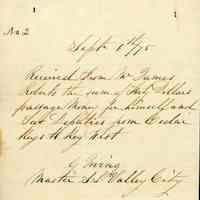 No 2
Sept 6th/75
Received from Mr James
Roberts the sum of Forty Dollars
passage Money for himself and
Two Deputies from Cedar
Keys to Key West
Master S.S. Valley City